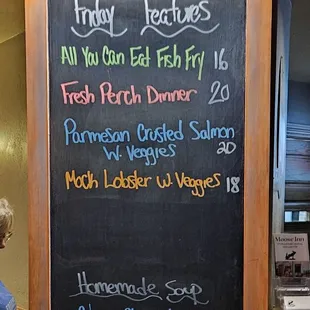 Friday Features
All You Can Eat Fish Fry 16
Fresh Perch Dinner 20
Parmesan Crusted Salmon
W. Veggies 20
Mock Lobster W. Veggies 18
Homemade Soup
Moose Inn